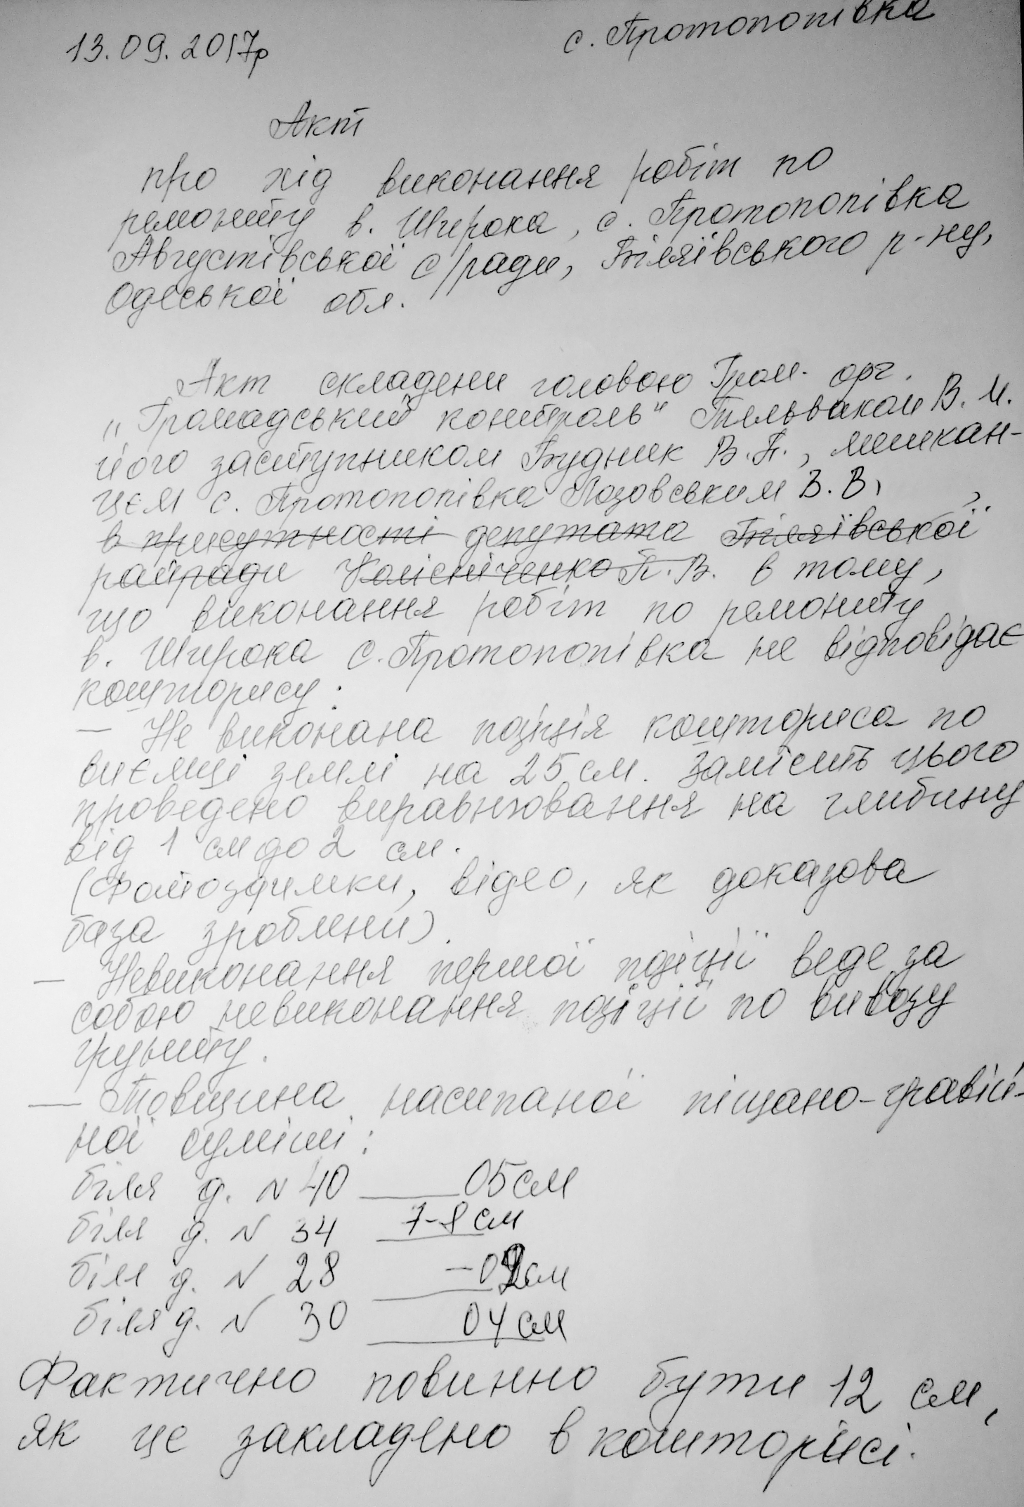 13.09.2017р
с. Протопопівка
Акт
про хід виконання робіт по
ремонту в. Широка, с. Протопопівка
Августівської с/ради, Біляївського р-ну,
Одеської обл.
Акт складени головою Гром. орг.
"Громадський контроль" В. И.
його заступником Будник В. П., мешкан-
цєм с. Протопопівка Лозовським В. В,
в присутності депутата Біляївської
райради Колісніченко П. В. в тому,
що виконання робіт по ремонту
в. Широка с. Протопопівка не відповідає
кошторису:
– Не виконана позіція кошториса по
виємці землі на 25 см. Замісить цього
проведено виравнювання на глибину
від 1 см до 2 см.
(Фотоздимки, відео, як доказова
база зроблени).
– Невиконання першої позіції веде за
собою невиконання позіції по вивозу
грунту.
– Товщина насипаної піщано-гравій-
ної суміші:
біля д. N 40 05 см
біля д. N 34 7-8 см
біля д. N 28 – см
біля д. N 30 04 см
Фактично повинно бути 12 см,
як це закладено в кошторисі.